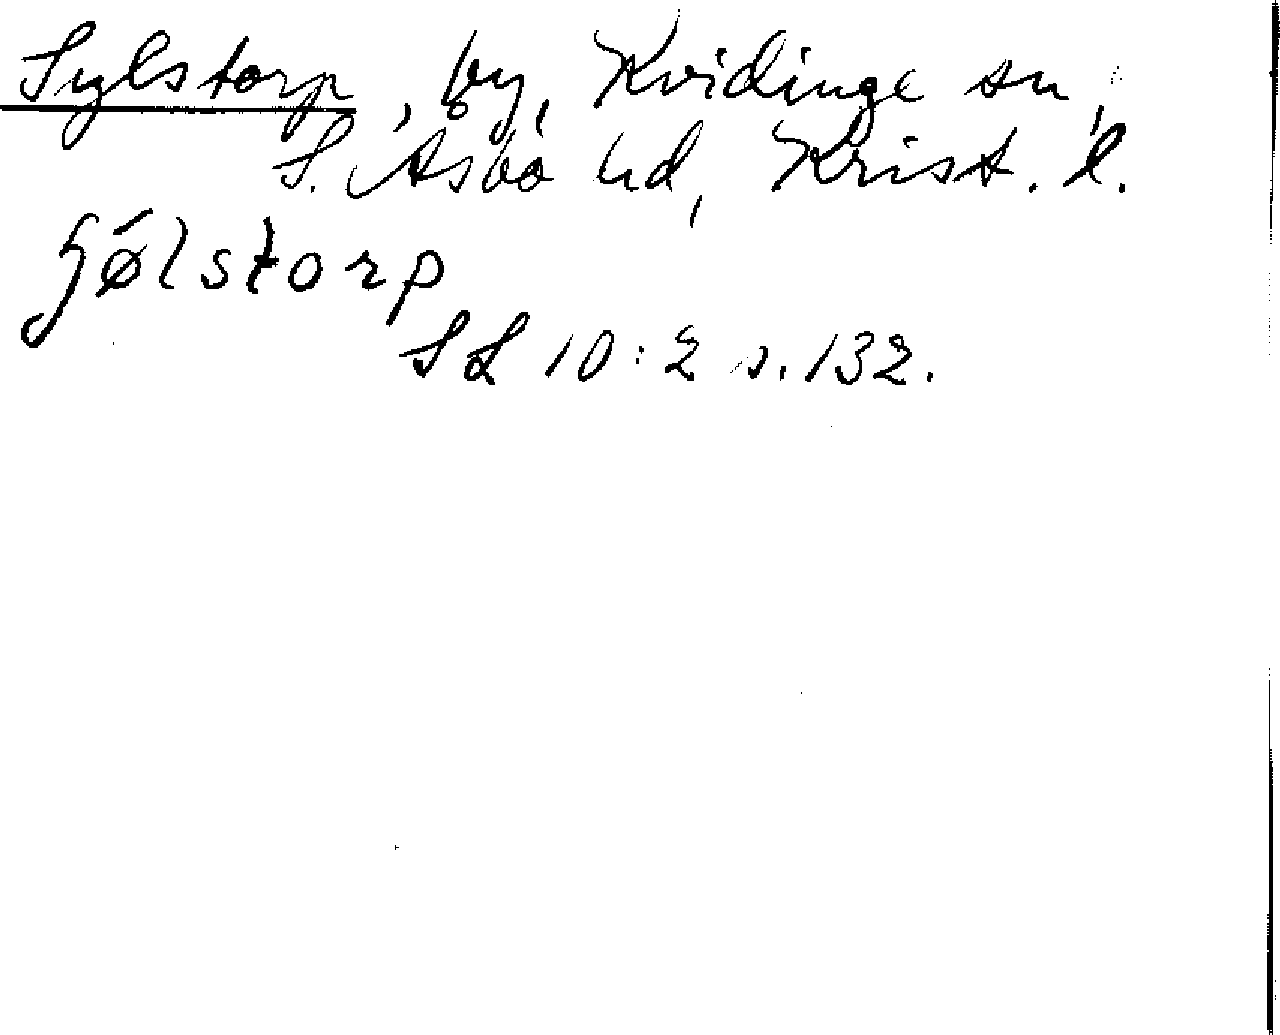 Sylstorp, by, Kvidinge sn,
S. Åsbo hd, Krist. l.
Gǿlstorp
SL 10:2 s. 132.